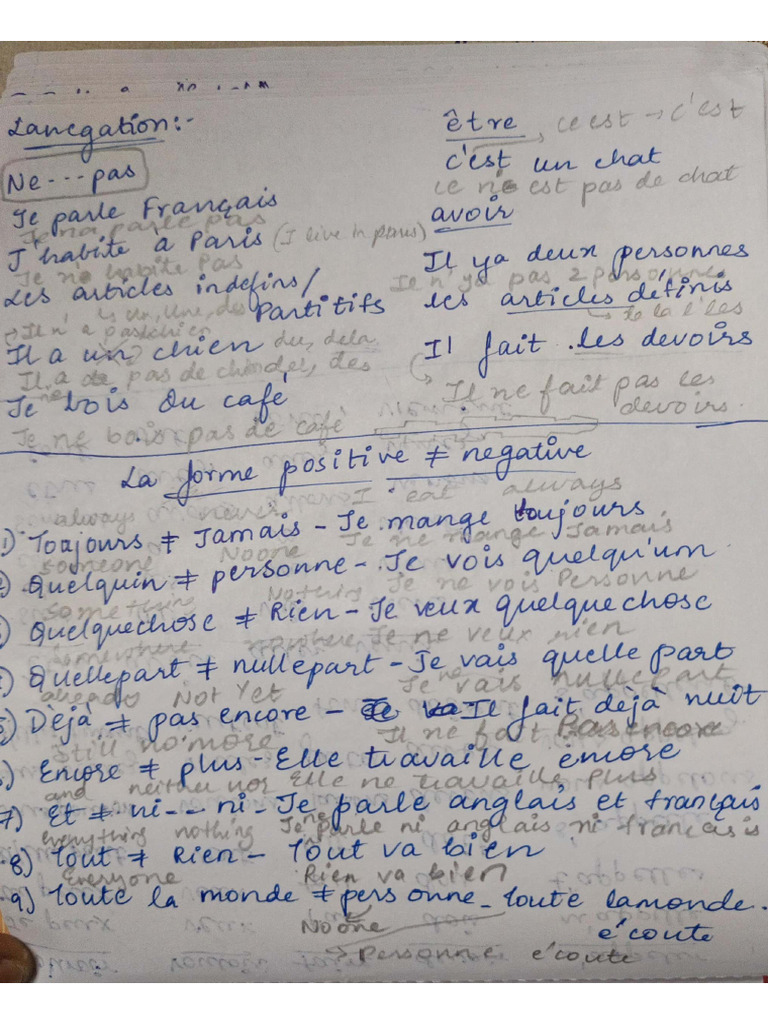 Lanegation:-
Ne---pas
Je parle Français
Je na parle pas
J'habite à Paris (I live in paris)
Je n' habite Pas
Les articles indefins/
Partitifs
un, une, des
Il n' a pas chien
Il a un chien du, dela
Il a de pas de chindes, des
Je bois du café
ne
Je ne bois pas de café
être, ce est → c'est
c'est un chat
ce ne est pas de chat
avoir
Il ya deux personnes
Il n'ya pas 2 personne
les articles définis
le la l' les
Il fait les devoirs
Il ne fait pas les
devoirs.
La forme positive ≠ negative
I eat always
always never
1) Toujours ≠ Jamais - Je mange toujours
someone Noone Je ne mange Jamais
Quelquin ≠ personne - Je vois quelqu'um
something Nothing Je ne vois Personne
Quelquechose ≠ Rien - Je veux quelquechose
somewhere nowhere Je ne veux rien
Quellepart ≠ nullepart - Je vais quelle part
already Not Yet Je ne vais nullepart
Dèjà ≠ pas encore - Il fait déjà nuit
Still no more Il ne fait Pas encore
Encore ≠ plus - Elle travaille encore
and neither nor Elle ne travaille Plus
7) Et ≠ ni--- ni - Je parle anglais et français
everything nothing Je ne parle ni anglais ni français
8) Tout ≠ Rien - Tout va bien
Everyone Rien va bien
9) Toute la monde ≠ personne - Toute lamonde.
Noone é'coute
Personne é'coute